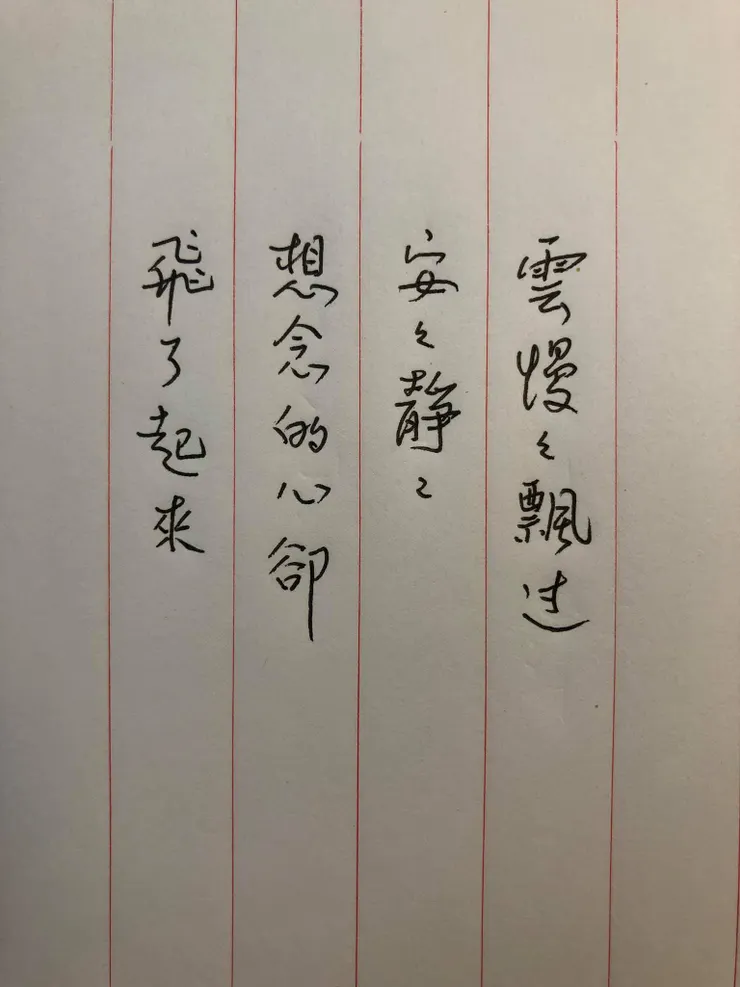 雲慢々飄过
安々静々
想念的心卻
飛了起來